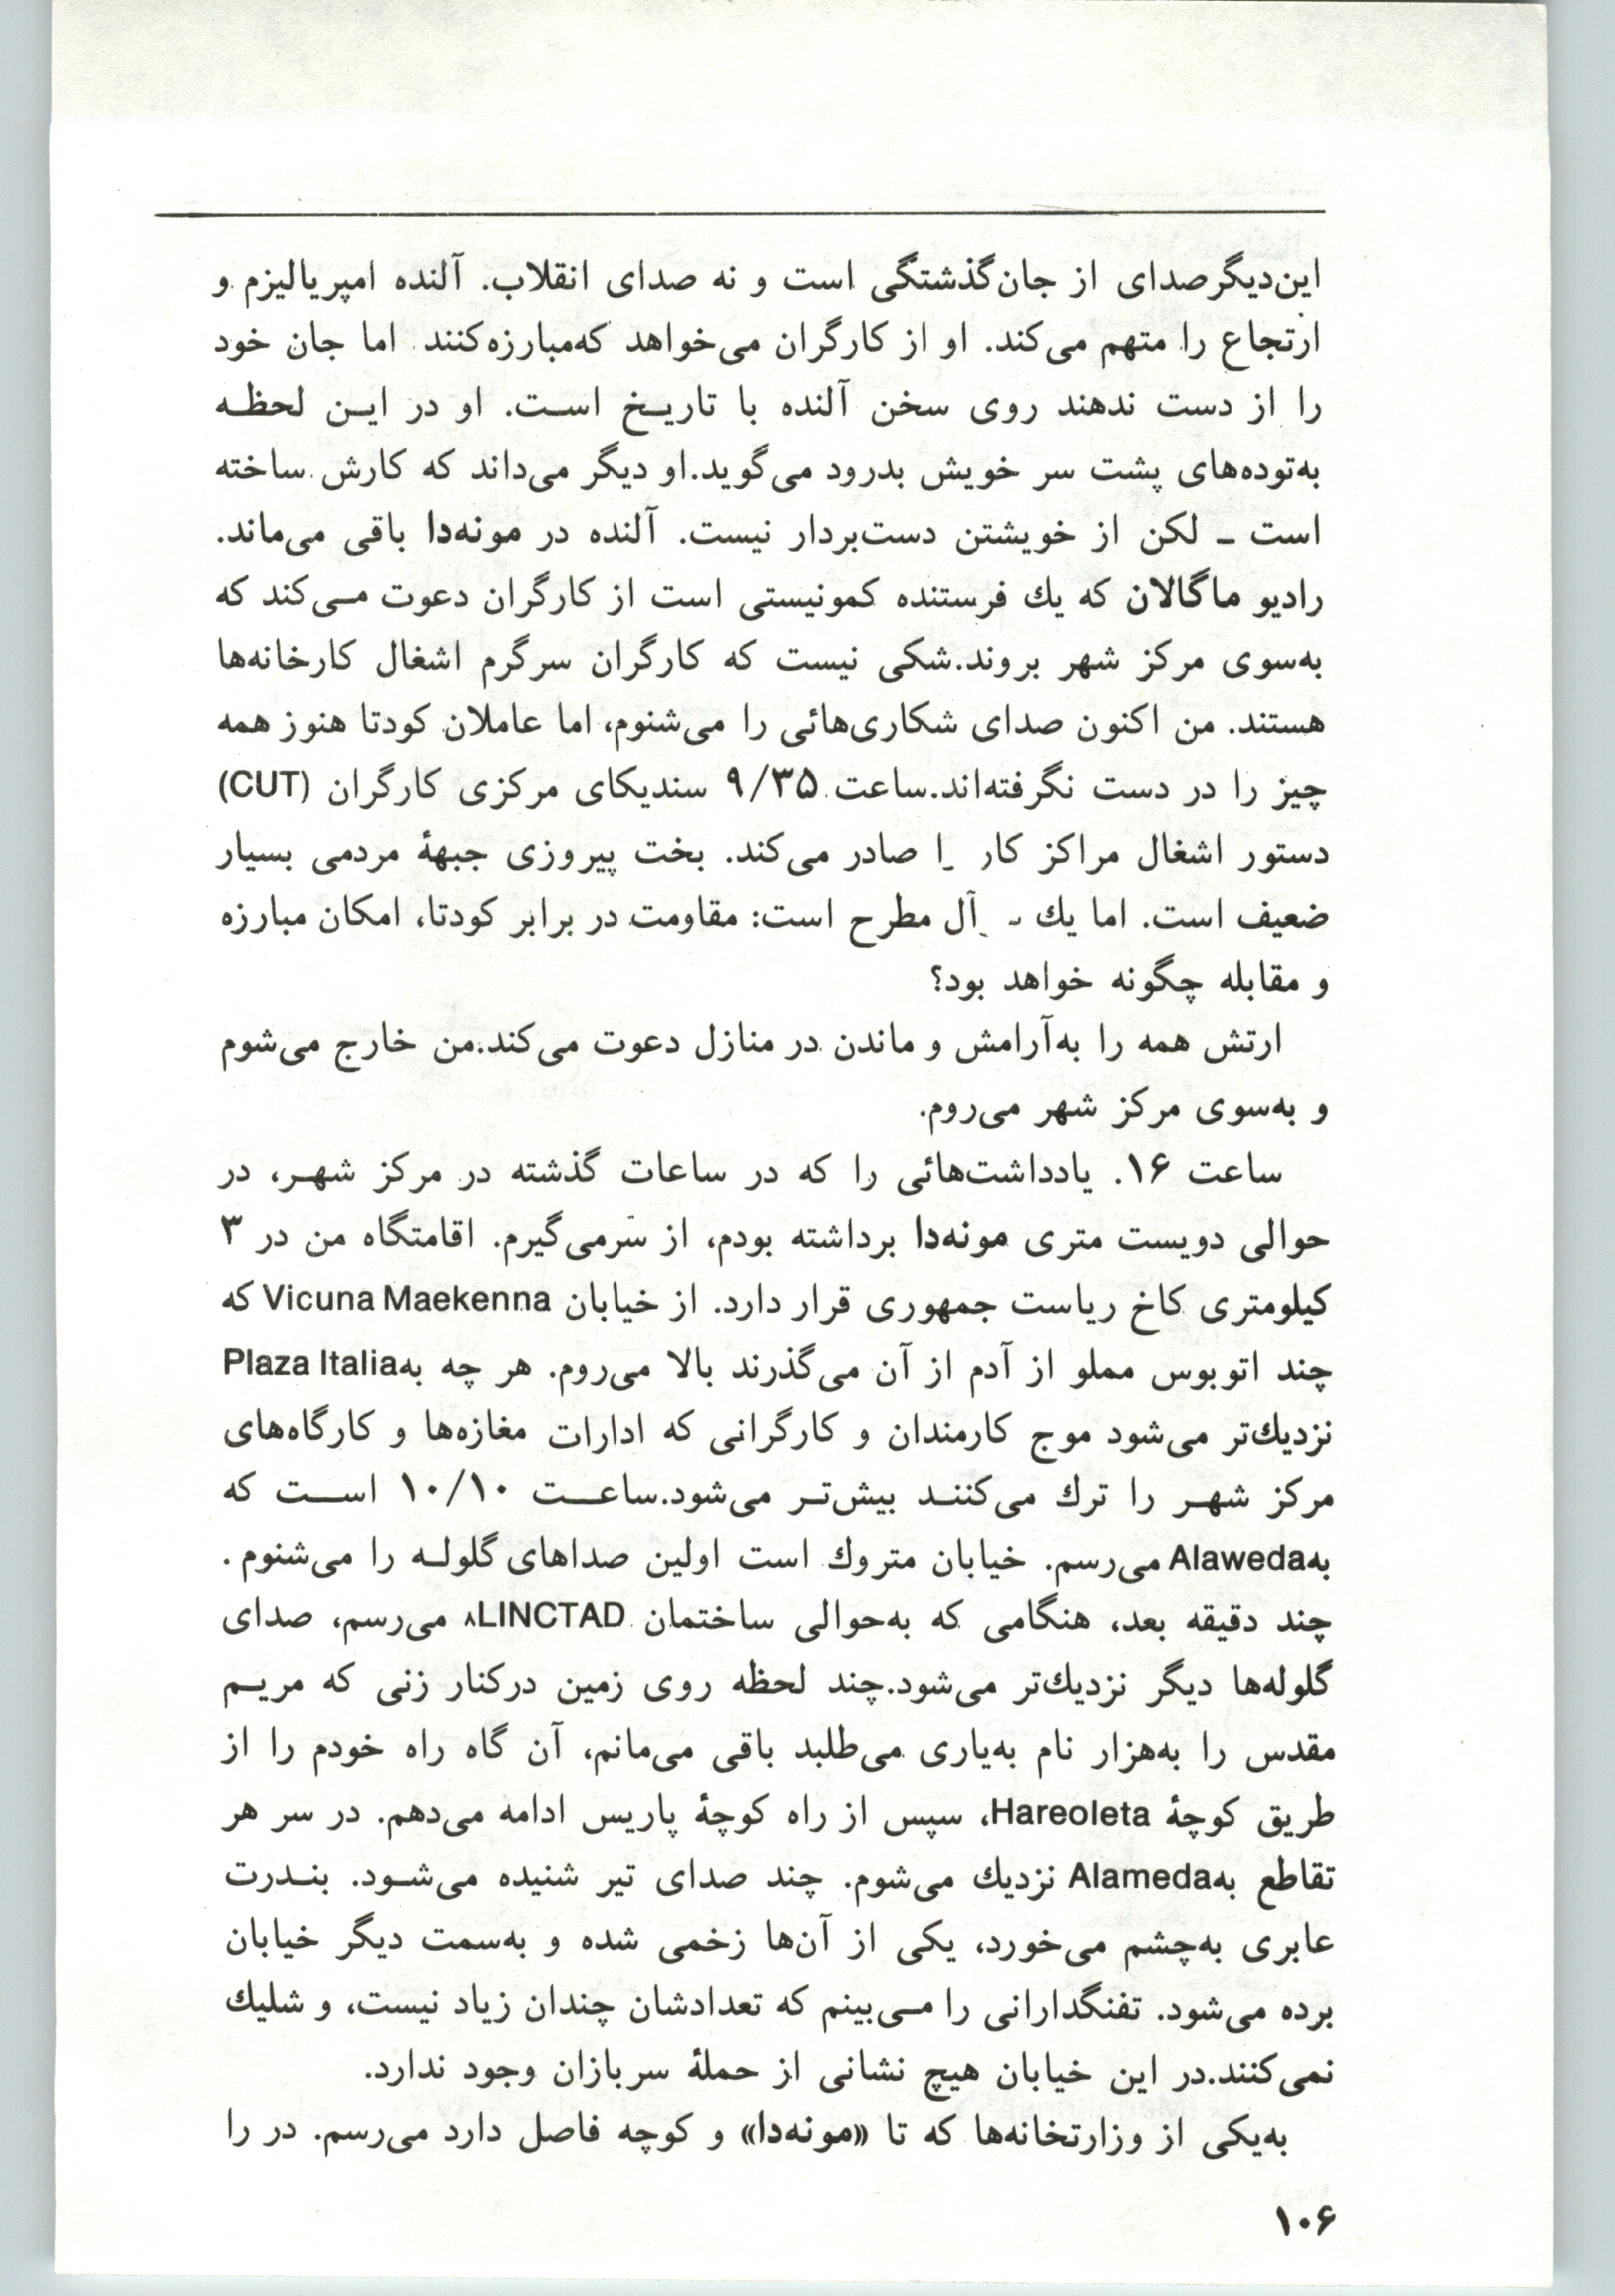 این‌دیگر صدای از جان‌گذشتگی است و نه صدای انقلاب. آلنده امپریالیزم و
ارتجاع را متهم می‌کند. او از کارگران می‌خواهد که‌مبارزه‌کنند اما جان خود
را از دست ندهند روی سخن آلنده با تاریـخ اسـت. او در ایـن لحظـه
به‌توده‌های پشت سر خویش بدرود می‌گوید.او دیگر می‌داند که کارش ساخته
است ـ لکن از خویشتن دست‌بردار نیست. آلنده در مونه‌دا باقی می‌ماند.
رادیو ماگالان که یك فرستنده کمونیستی است از کارگران دعوت مـی‌کند که
به‌سوی مرکز شهر بروند.شکی نیست که کارگران سرگرم اشغال کارخانه‌ها
هستند. من اکنون صدای شکاری‌هائی را می‌شنوم، اما عاملان کودتا هنوز همه
چیز را در دست نگرفته‌اند.ساعت ۹/۳۵ سندیکای مرکزی کارگران (CUT)
دستور اشغال مراکز کار را صادر می‌کند. بخت پیروزی جبههٔ مردمی بسیار
ضعیف است. اما یك مطرح است: مقاومت در برابر کودتا، امکان مبارزه
و مقابله چگونه خواهد بود؟
ارتش همه را به‌آرامش و ماندن در منازل دعوت می‌کند.من خارج می‌شوم
و به‌سوی مرکز شهر می‌روم.
ساعت ۱۶. یادداشت‌هائی را که در ساعات گذشته در مرکز شهـر، در
حوالی دویست متری مونه‌دا برداشته بودم، از سَرمی‌گیرم. اقامتگاه من در ۳
کیلومتری کاخ ریاست جمهوری قرار دارد. از خیابان Vicuna Maekenna که
چند اتوبوس مملو از آدم از آن می‌گذرند بالا می‌روم. هر چه به‌Plaza Italia
نزدیك‌تر می‌شود موج کارمندان و کارگرانی که ادارات مغازه‌ها و کارگاه‌های
مرکز شهـر را ترك می‌کننـد بیش‌تـر می‌شود.ساعـت ۱۰/۱۰ اسـت که
به‌Alaweda می‌رسم. خیابان متروك است اولین صداهای گلولـه را می‌شنوم.
چند دقیقه بعد، هنگامی که به‌حوالی ساختمان LINCTAD۸ می‌رسم، صدای
گلوله‌ها دیگر نزدیك‌تر می‌شود.چند لحظه روی زمین درکنار زنی که مریـم
مقدس را به‌هزار نام به‌یاری می‌طلبد باقی می‌مانم، آن گاه راه خودم را از
طریق کوچهٔ Hareoleta، سپس از راه کوچهٔ پاریس ادامه می‌دهم. در سر هر
تقاطع به‌Alameda نزدیك می‌شوم. چند صدای تیر شنیده می‌شـود. بنـدرت
عابری به‌چشم می‌خورد، یکی از آن‌ها زخمی شده و به‌سمت دیگر خیابان
برده می‌شود. تفنگدارانی را مـی‌بینم که تعدادشان چندان زیاد نیست، و شلیك
نمی‌کنند.در این خیابان هیچ نشانی از حملهٔ سربازان وجود ندارد.
به‌یکی از وزارتخانه‌ها که تا «مونه‌دا» و کوچه فاصل دارد می‌رسم. در را
۱۰۶